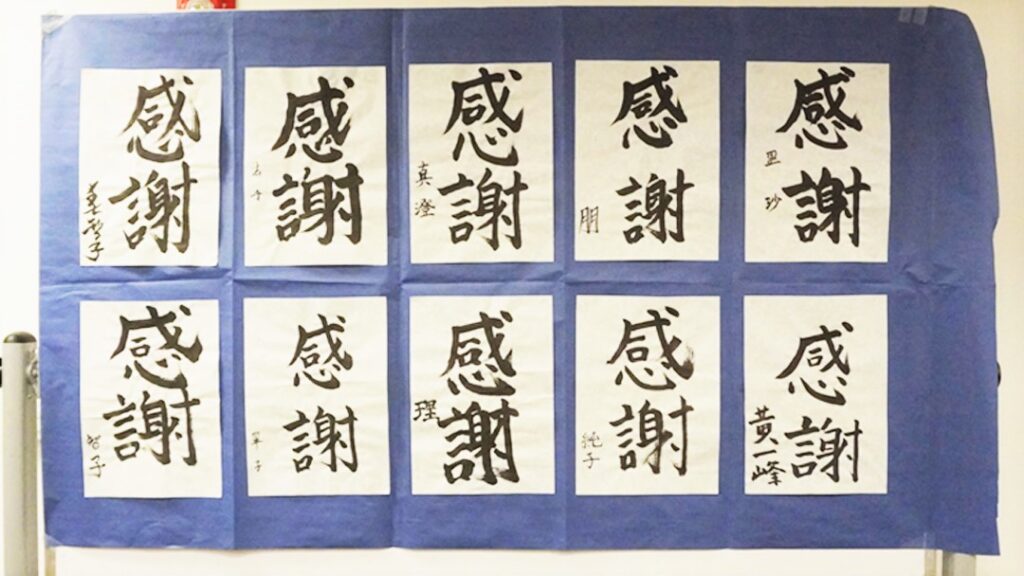 感謝
感謝
感謝
真澄
感謝
朋
感謝
里砂
感謝
智子
感謝
感謝
理
感謝
純子
感謝
黄一峰